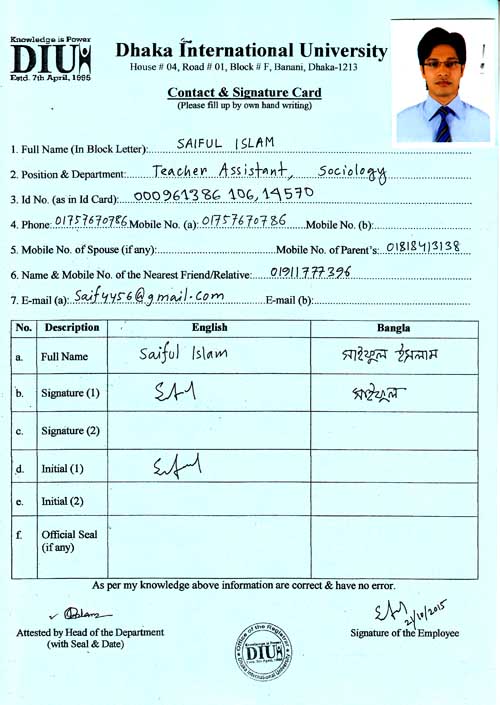 Knowledge is Power
DIU
Estd. 7th April, 1995
Dhaka International University
House # 04, Road # 01, Block # F, Banani, Dhaka-1213
Contact & Signature Card
(Please fill up by own hand writing)
1. Full Name (In Block Letter): SAIFUL ISLAM
2. Position & Department: Teacher Assistant, Sociology
3. Id No. (as in Id Card): 000961386 106, 14570
4. Phone: 01757670786 Mobile No. (a): 01757670786 Mobile No. (b):
5. Mobile No. of Spouse (if any): Mobile No. of Parent's: 01818413138
6. Name & Mobile No. of the Nearest Friend/Relative: 01911777396
7. E-mail (a): Saif4456@gmail.com E-mail (b):
No. Description English Bangla
a. Full Name Saiful Islam সাইফুল ইসলাম
b. Signature (1) সাইফুল
c. Signature (2)
d. Initial (1)
e. Initial (2)
f. Official Seal
(if any)
As per my knowledge above information are correct & have no error.
21/10/2015
Attested by Head of the Department
(with Seal & Date)
Signature of the Employee
Office of the Registrar
Knowledge is Power
DIU
Estd. 7th April, 1995
Dhaka International University